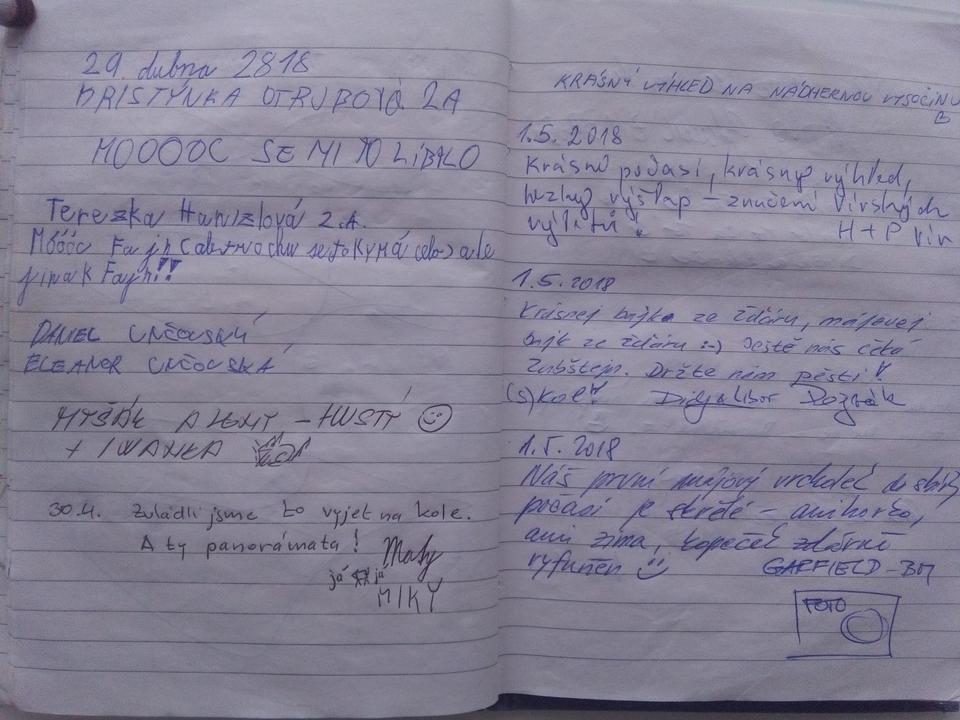 29. dubna 2818
KRISTÝNKA OTRUBOVÁ 2A
MOOOOC SE MI TO LÍBILO
Terezka Hanizlová 2.A.
Móóóc Fajn
jinak Fajn!!
DANIEL UNČOVSKÝ
ELEANOR UNČOVSKÁ
MYŠÁK A - HUSTÝ
+ IVANKA
30.4. Zvládli jsme to vyjet na kole.
A ty panorámata! Maty
já já
MIKY
KRÁSNÝ VÝHLED NA NÁDHERNOU VYSOČINU
B
1.5.2018
Krásné počasí, krásny výhled,
hezky výšlap – značení Vírských
výletů! H+P Vír
1.5.2018
Krásnej bajka ze Žďáru, májovej
bajk ze Žďáru :-) Ještě nás čeká
Zubštejn. Držte nám pěsti!
(S)Kol!
1.5.2018
Náš první májový vrcholeč do sbír
počasí je skvělé – ani horko,
ani zima, kopeček zdárně
vyfuněn GARFIELD-BM
FOTO